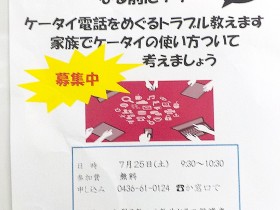 ケータイ電話をめぐるトラブル教えます
家族でケータイの使い方ついて
考えましょう
募集中
日 時 7月25日(土) 9:30~10:30
参加費 無料
申し込み 0436-61-0124 ☎か窓口で